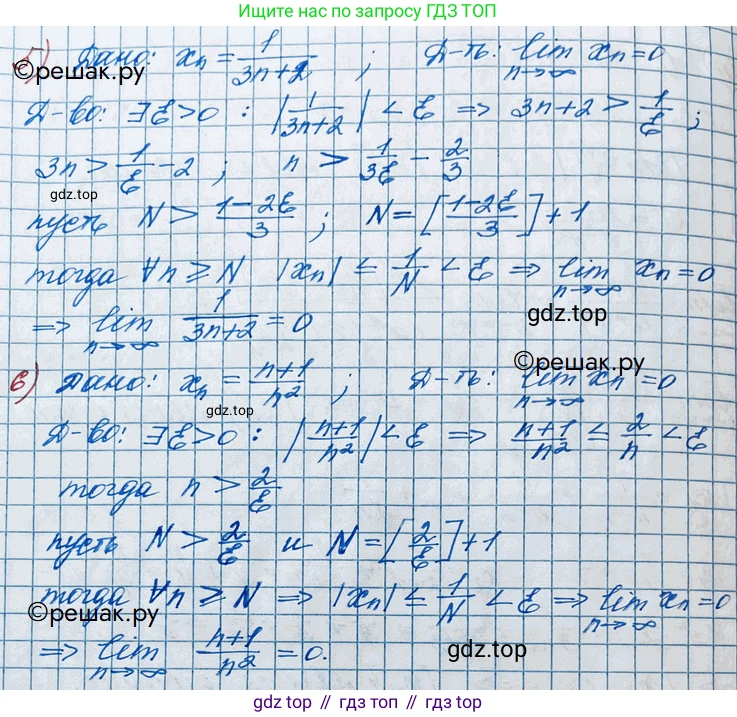 Ищите нас по запросу ГДЗ ТОП
5) Дано: xₙ = 1/(3n+2) ; Д-ть: lim n→∞ xₙ = 0
©решак.ру
Д-во: ∃ℰ>0 : |1/(3n+2)| < ℰ ⇒ 3n+2 > 1/ℰ ;
3n > 1/ℰ - 2 ; n > 1/(3ℰ) - 2/3
gdz.top
пусть N > (1-2ℰ)/3 ; N = [(1-2ℰ)/3] + 1
тогда ∀n ≥ N |xₙ| ≤ 1/N < ℰ ⇒ lim n→∞ xₙ = 0
gdz.top
⇒ lim n→∞ 1/(3n+2) = 0
©решак.ру
6) Дано: xₙ = (n+1)/n² ; Д-ть: lim n→∞ xₙ = 0
gdz.top
Д-во: ∃ℰ>0 : |(n+1)/n²| < ℰ ⇒ (n+1)/n² ≤ 2/n < ℰ
тогда n > 2/ℰ
пусть N > 2/ℰ и N = [2/ℰ] + 1
тогда ∀n ≥ N ⇒ |xₙ| ≤ 1/N < ℰ ⇒ lim n→∞ xₙ = 0
©решак.ру
⇒ lim n→∞ (n+1)/n² = 0.
gdz.top
gdz.top // гдз.топ // gdz.top